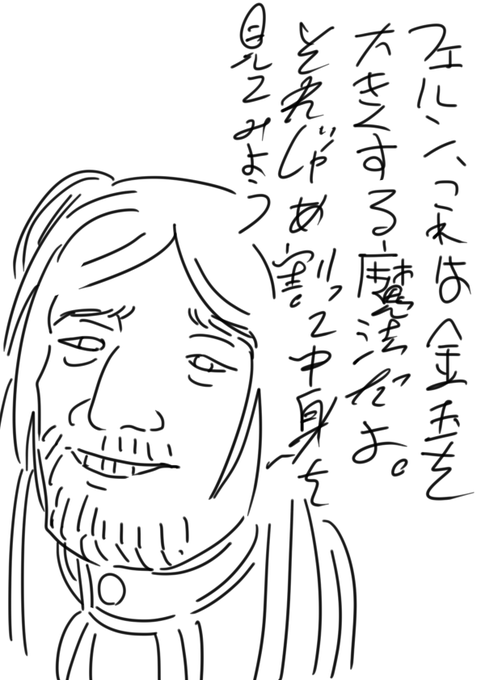 フェルン、これは金玉を
大きくする魔法だよ。
それじゃあ割って中身を
見てみよう